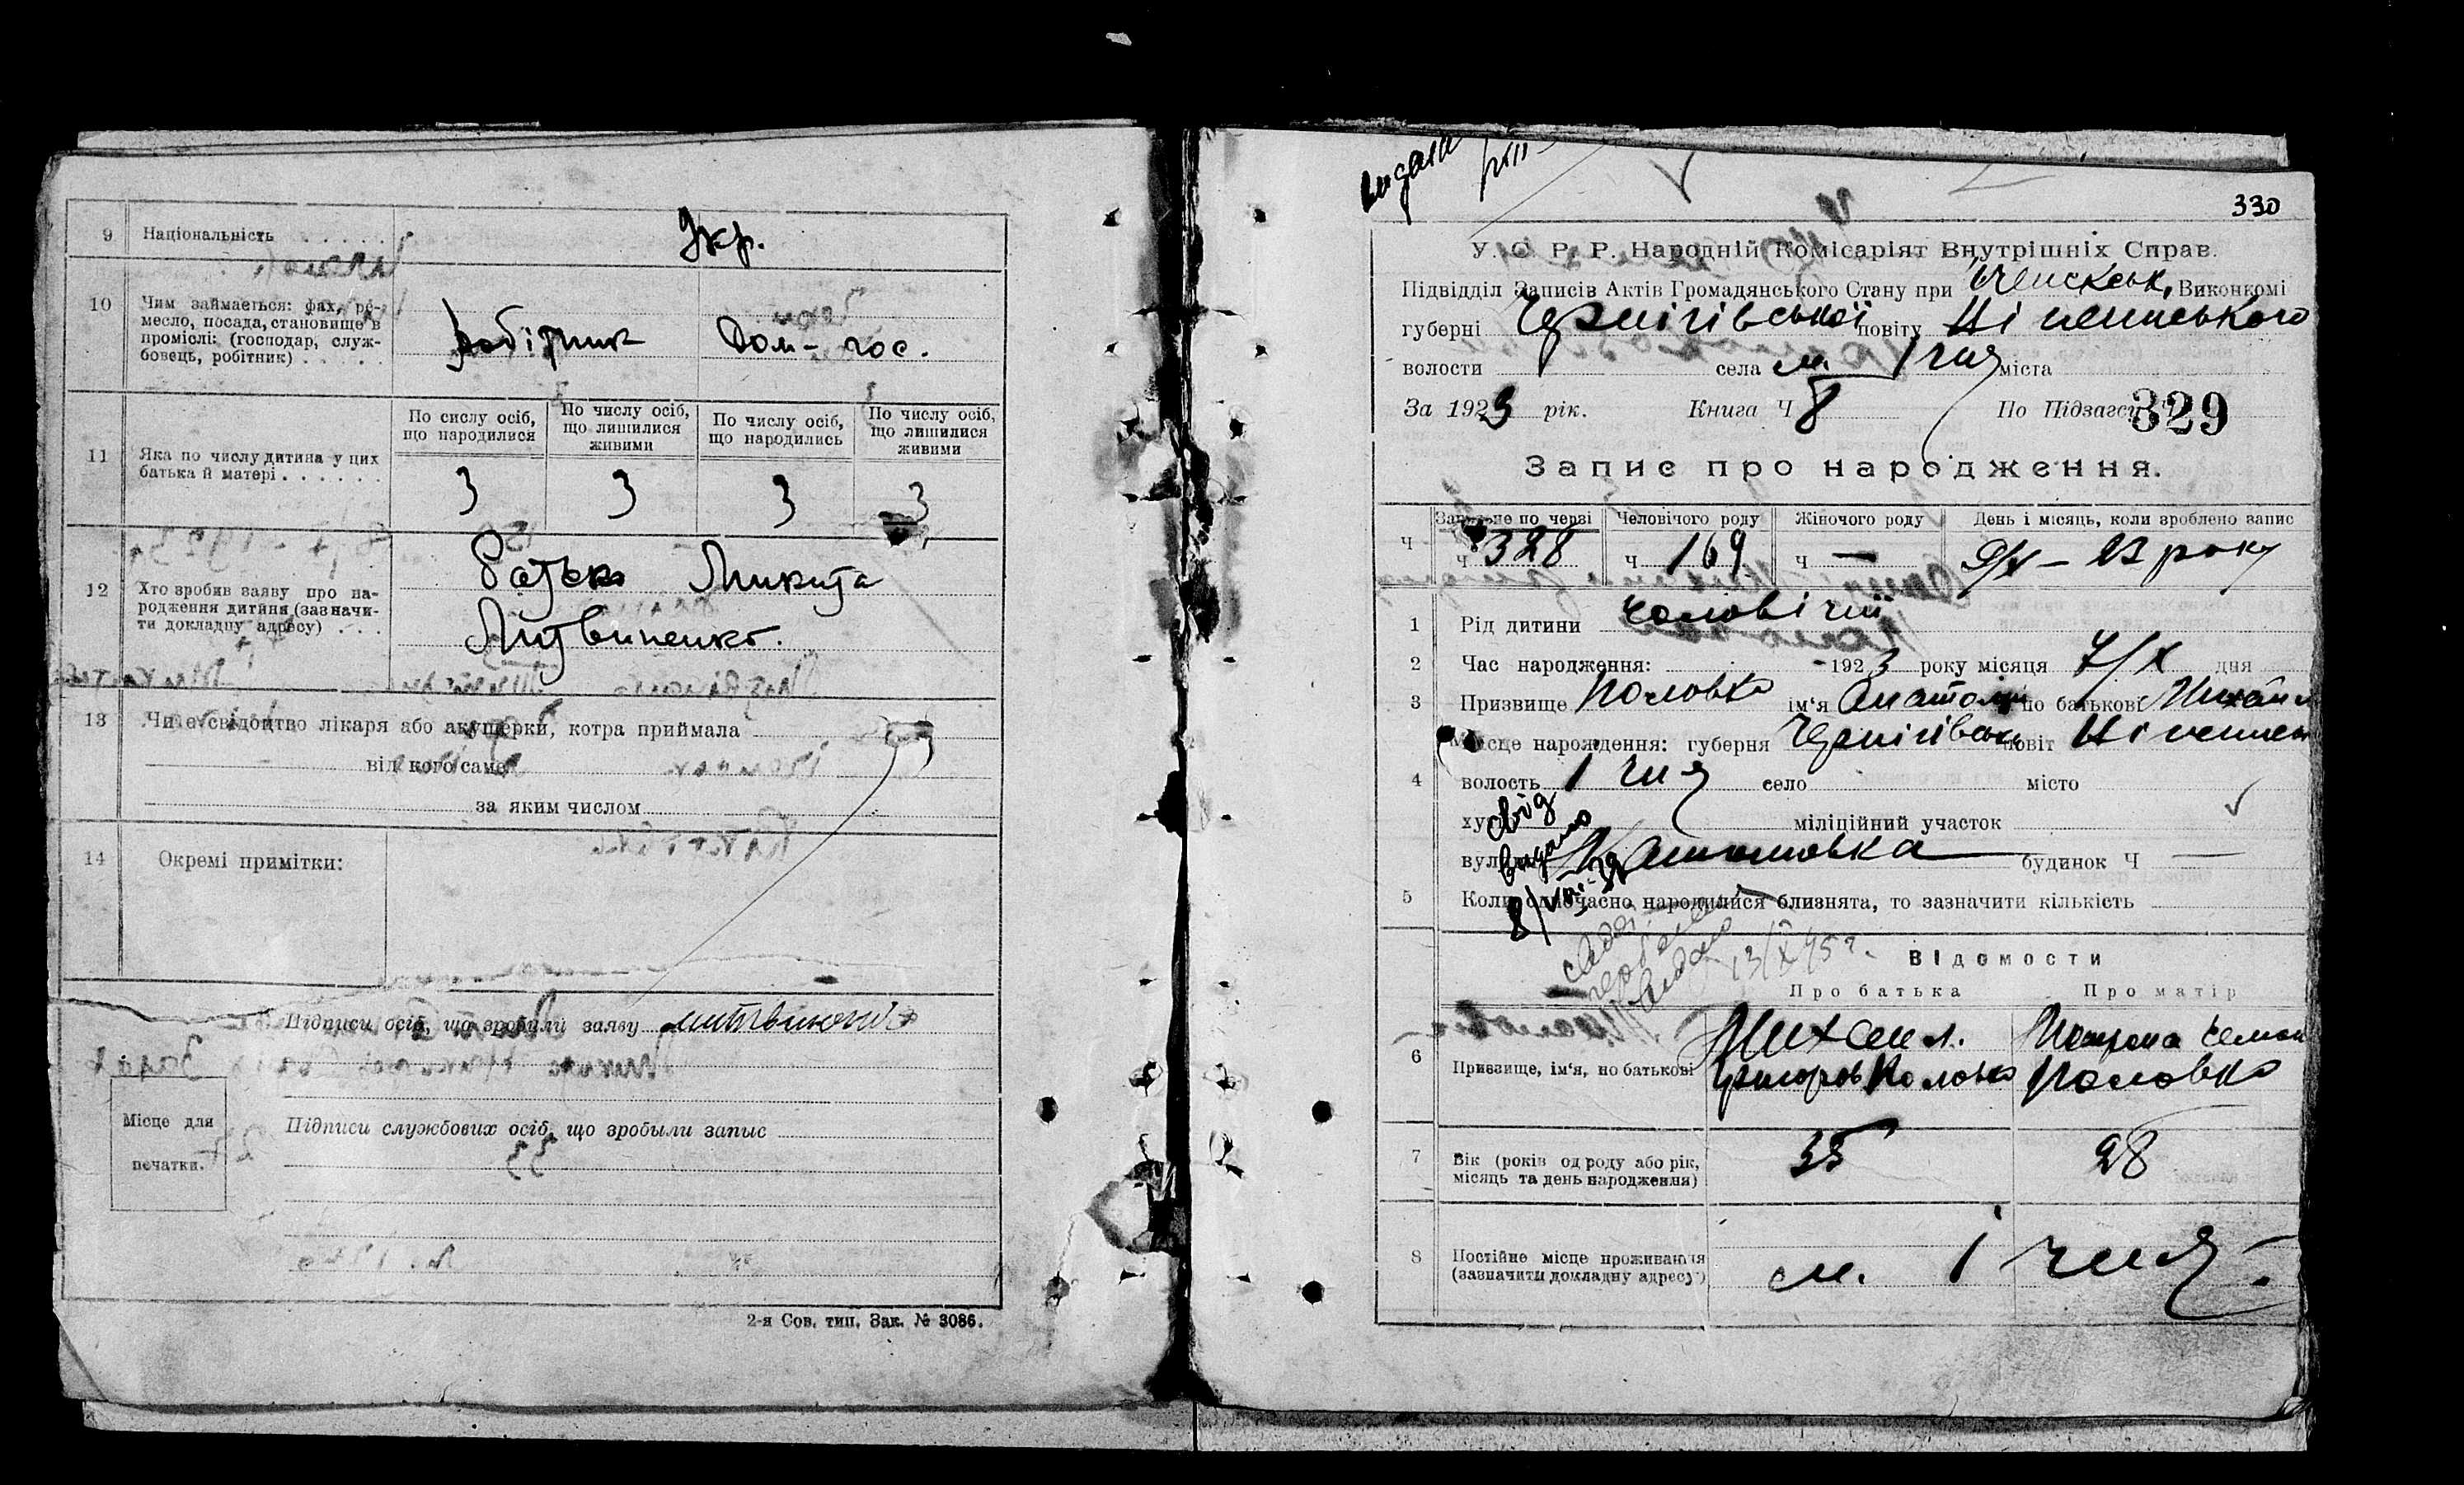 9 Національність . . . . . Укр.
10 Чим займається: фах, ре-
месло, посада, становище в
промислі: (господар, служ-
бовець, робітник) . . . . .
робітник Дом-гос.
11 Яка по числу дитина у цих
батька й матері . . . . . .
По числу осіб, що народилися
По числу осіб, що лишилися живими
По числу осіб, що народились
По числу осіб, що лишилися живими
3 3 3 3
12 Хто зробив заяву про на-
родження дитини (зазначи-
ти докладну адресу) . . .
батько Микита
Литвиненко.
13 Чи є свідоцтво лікаря або акушерки, котра приймала
від кого саме
за яким числом
14 Окремі примітки:
Підписи осіб, що зробили заяву
Місце для
печатки.
Підписи службових осіб, що зробыли запыс
2-я Сов. тип. Зак. № 3086.
330
У. С. Р. Р. Народній Комісаріят Внутрішніх Справ.
Підвідділ Записів Актів Громадянського Стану при Виконкомі
губерні Чернігівської повіту Ніженського
волости села м. Ічня міста
За 1923 рік. Книга Ч 8 По Підзагсу Ч 329
Запис про народження.
Ч Загальне по черзі Человічого роду Жіночого роду День і місяць, коли зроблено запис
Ч 328 Ч 169 Ч — 9/X – 23 року
1 Рід дитини чоловічий
2 Час народження: 1923 року місяця 7/X дня
3 Призвище Половко ім'я Анатолій по батькові Михайл
4 Місце народження: губерня Чернігівськ повіт Ніженськ
волость Ічня село місто
хутір міліційний участок
вулиця будинок Ч —
свід
видано
5 Коли одночасно народилися близнята, то зазначити кількість —
13/X 45 г.
Відомости
Про батька Про матір
6 Призвище, ім'я, по батькові
Михаил. Семен
Григоров Половко Половко
7 Вік (років од роду або рік,
місяць та день народження)
35 28
8 Постійне місце проживання
(зазначити докладну адресу)
м. Ічня